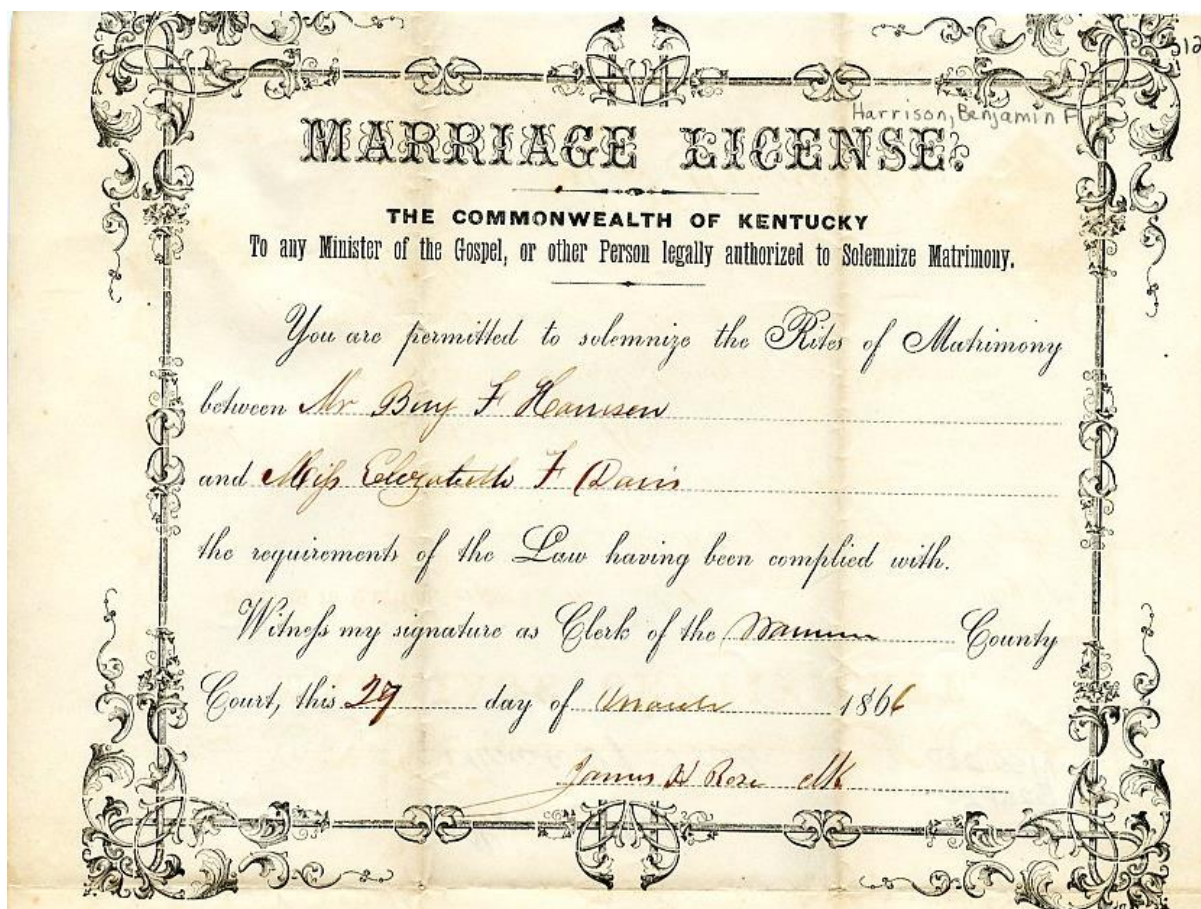 312
Harrison, Benjamin F
MARRIAGE LICENSE.
THE COMMONWEALTH OF KENTUCKY
To any Minister of the Gospel, or other Person legally authorized to Solemnize Matrimony.
You are permitted to solemnize the Rites of Matrimony
between Mr Benj F Harrison
and Miss Elizabeth F Davis
the requirements of the Law having been complied with.
Witness my signature as Clerk of the Warren County
Court, this day of March 1866
James H Rose clk